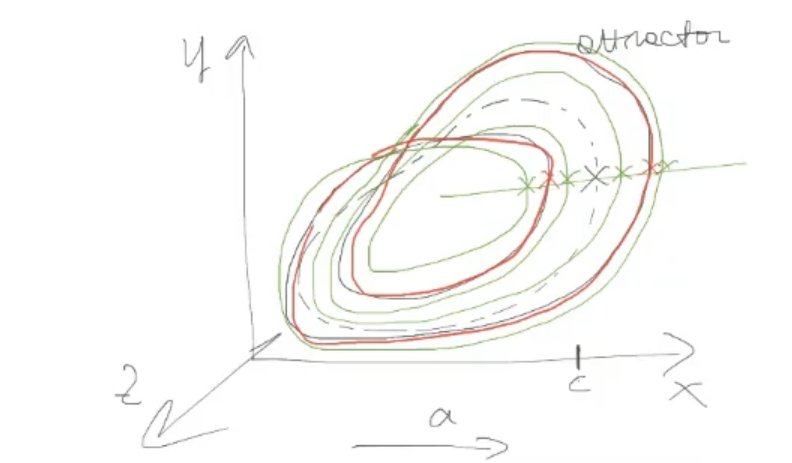 attractor
y
z
c
x
a